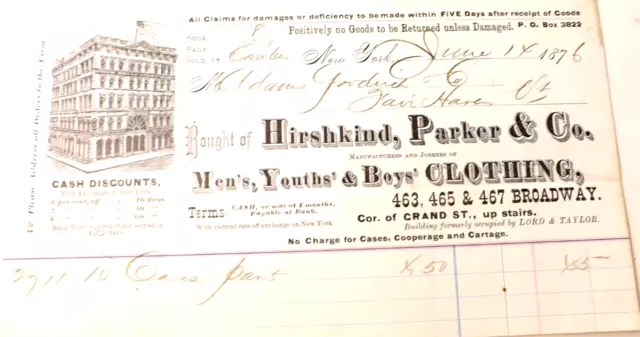 All Claims for damages or deficiency to be made within FIVE Days after receipt of Goods
Positively no Goods to be Returned unless Damaged. P. O. Box 3822
BOOK 8
PAGE
SOLD BY
New York, June 14 1876
M Adams Goodrich & Co
Fair Haven Vt
Bought of Hirshkind, Parker & Co.
MANUFACTURERS AND JOBBERS OF
Men's, Youths' & Boys' CLOTHING,
463, 465 & 467 BROADWAY.
Cor. of GRAND ST., up stairs.
Building formerly occupied by LORD & TAYLOR.
Terms: CASH, or note at 4 months, Payable at Bank.
With current rate of exchange on New York.
No Charge for Cases, Cooperage and Cartage.
CASH DISCOUNTS,
per cent. off 10 days
30
60
10 Pant 4 50